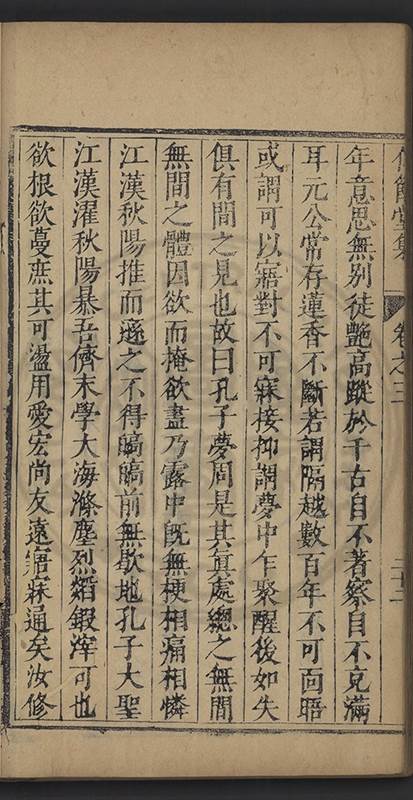 堂集
卷之三
年意思無別徒艷高蹤於千古自不著察自不充滿
耳元公常存蓮香不斷若謂隔越數百年不可面晤
或謂可以寤對不可寐接抑謂夢中乍聚醒後如失
俱有間之見也故曰孔子夢周是其眞處總之無間
無間之體因欲而掩欲盡乃露中旣無梗相痛相憐
江漢秋陽推而遜之不得皜皜前無歇地孔子大聖
江漢濯秋陽暴吾儕末學大海滌塵烈熖鍜滓可也
欲根欲蔓庶其可盪用愛宏尚友遠寤寐通矣汝修